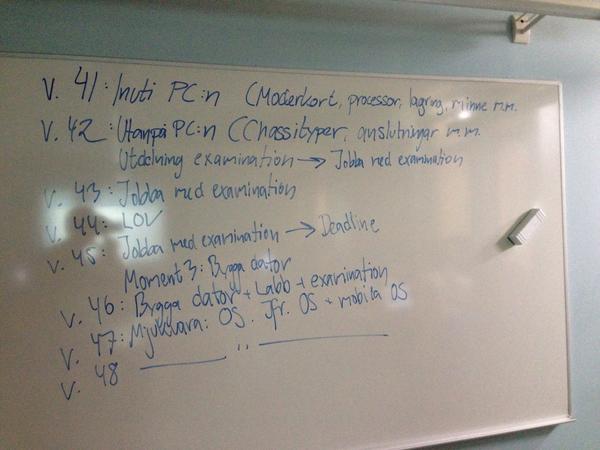 v. 41: Inuti PC:n (Moderkort, processor, lagring, minne m.m.
v. 42: Utanpå PC:n (Chassityper, anslutningar m.m.
Utdelning examination → Jobba med examination
v. 43: Jobba med examination
v. 44: LOV
v. 45: Jobba med examination → Deadline
Moment 3: Bygga dator
v. 46: Bygga dator + Labb + examination
v. 47: Mjukvara: OS. Jfr. OS + mobila OS
v. 48 ——— '' ———